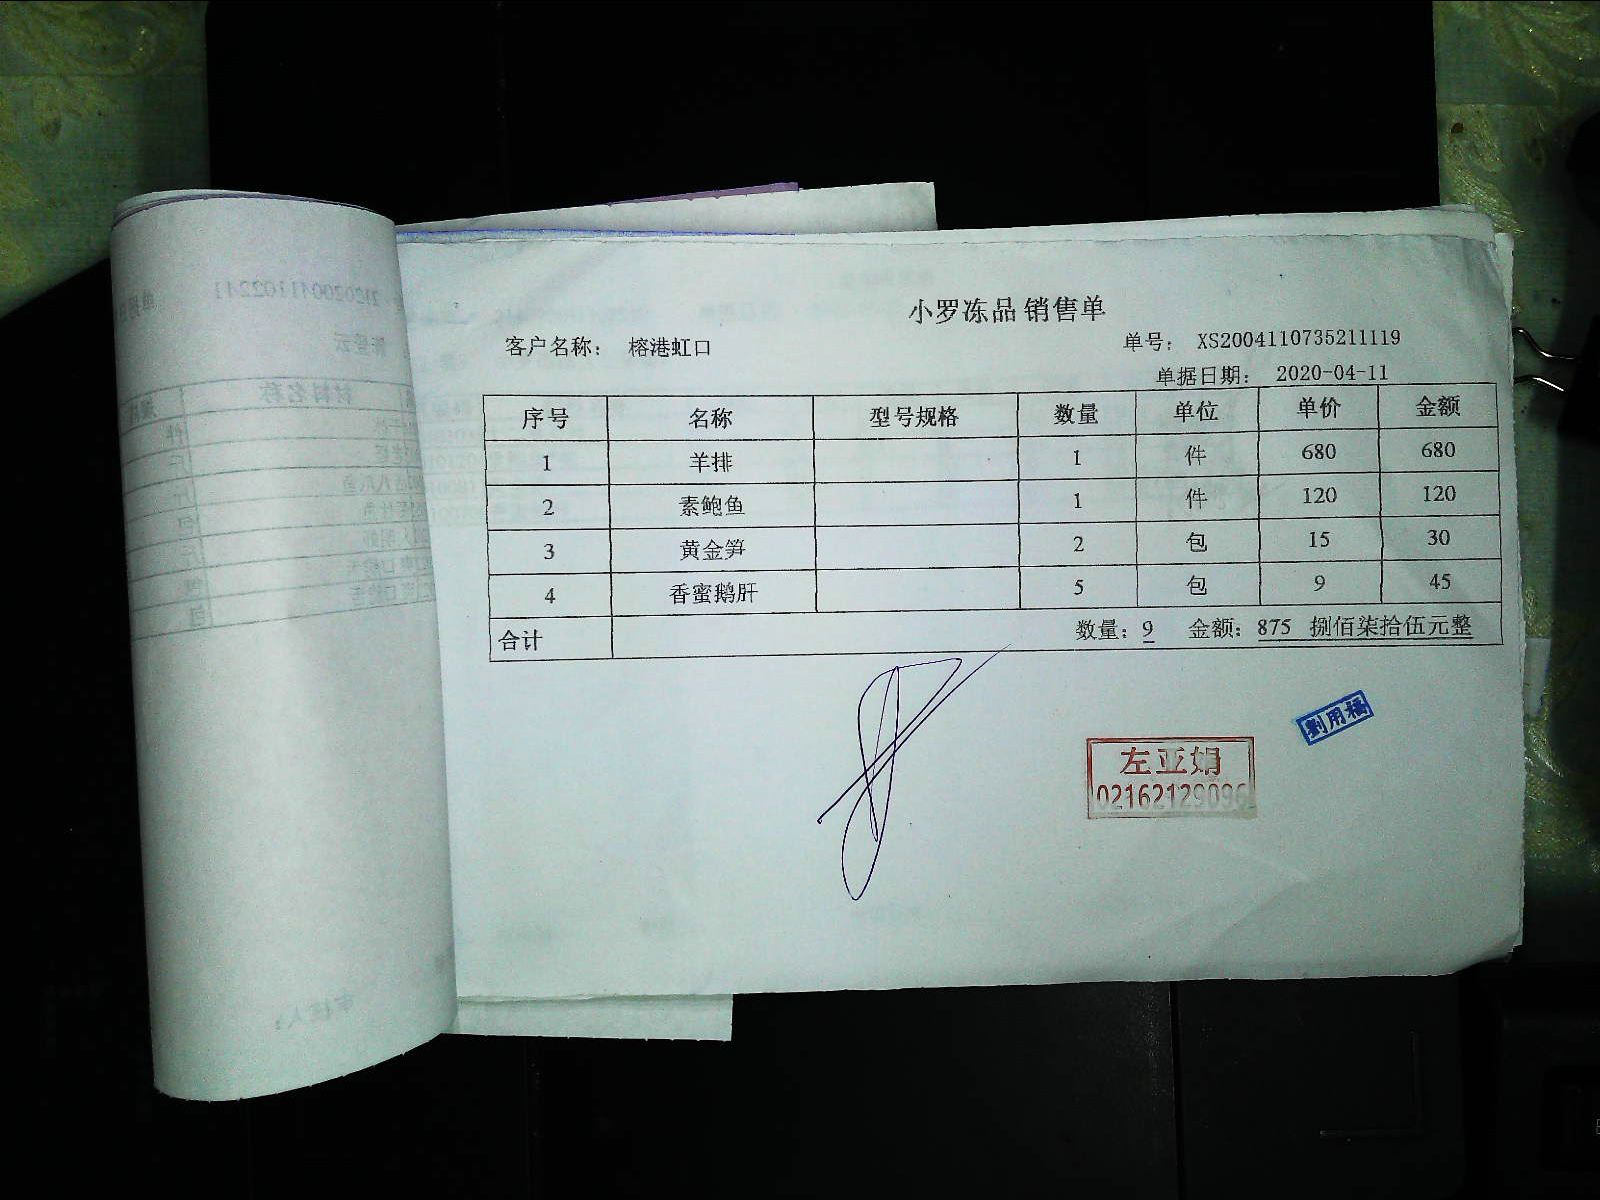 小罗冻品 销售单
客户名称： 榕港虹口
单号： XS2004110735211119
单据日期： 2020-04-11
序号 名称 型号规格 数量 单位 单价 金额
1 羊排 1 件 680 680
2 素鲍鱼 1 件 120 120
3 黄金笋 2 包 15 30
4 香蜜鹅肝 5 包 9 45
合计 数量：9 金额：875 捌佰柒拾伍元整
劉用楊
左亚娟
02162129096
材料名称